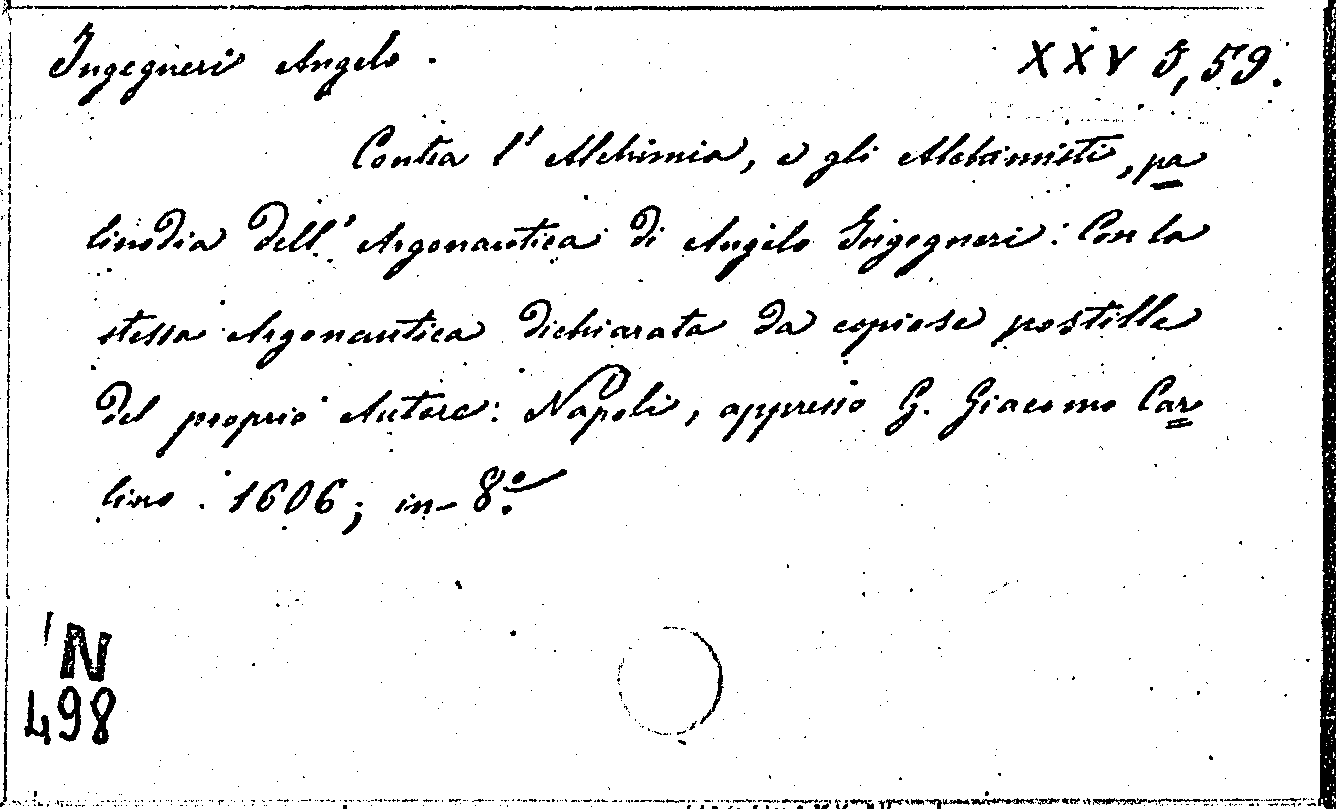 Ingegneri Angelo. XXV J, 59.
Contra l' Alchimia, e gli Alchimisti, pa
linodia dell' Argonautica di Angelo Ingegneri: Con la
stessa Argonautica dichiarata da copiose postille
del proprio Autore: Napoli, appresso G. Giacomo Car
lino. 1606; in-8.º
N
498